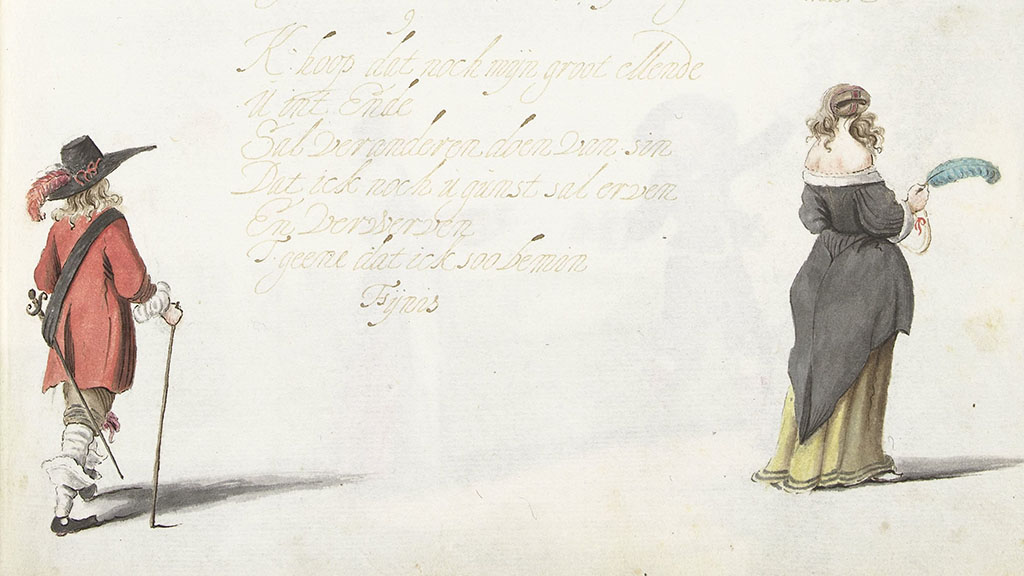 K. hoop dat noch mijn groot ellende
U int Ende
Sal veranderen doen van sin
Dat ick noch u gunst sal erven
En verwerven
T geene dat ick soo bemin
Fijnis